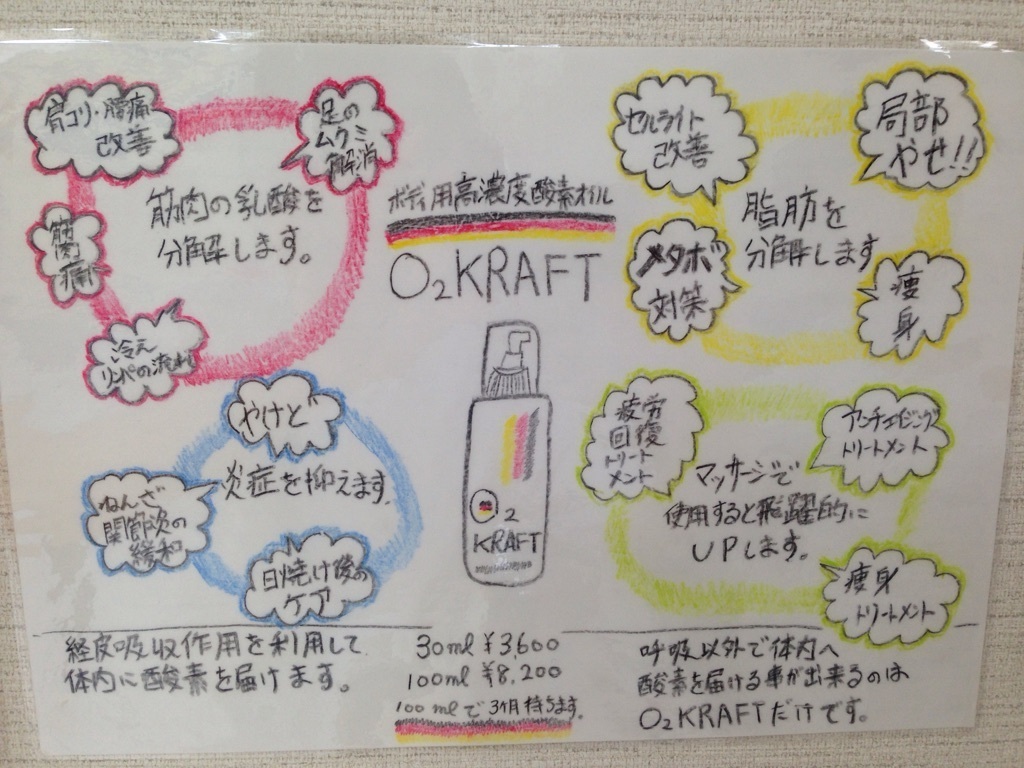 肩コリ・腰痛
改善
足の
ムクミ
解消
筋肉の乳酸を
分解します。
筋肉痛
冷え
リンパの流れ
ボディ用高濃度酸素オイル
O₂KRAFT
セルライト
改善
局部
やせ!!
脂肪を
分解します
メタボ
対策
痩身
やけど
炎症を抑えます。
ねんざ
関節炎の
緩和
日焼け後の
ケア
O₂
KRAFT
疲労
回復
トリート
メント
アンチエイジング
トリートメント
マッサージで
使用すると飛躍的に
UPします。
痩身
トリートメント
経皮吸収作用を利用して
体内に酸素を届けます。
30ml ¥3,600
100ml ¥8,200
100mlで3ヶ月持ちます。
呼吸以外で体内へ
酸素を届ける事が出来るのは
O₂KRAFTだけです。